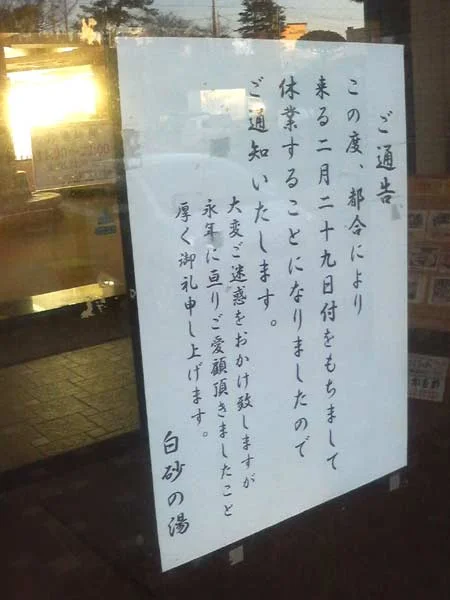 ご通告
この度、都合により
来る二月二十九日付をもちまして
休業することになりましたので
ご通知いたします。
大変ご迷惑をおかけ致しますが
永年に亘りご愛顧頂きましたこと
厚く御礼申し上げます。
白砂の湯